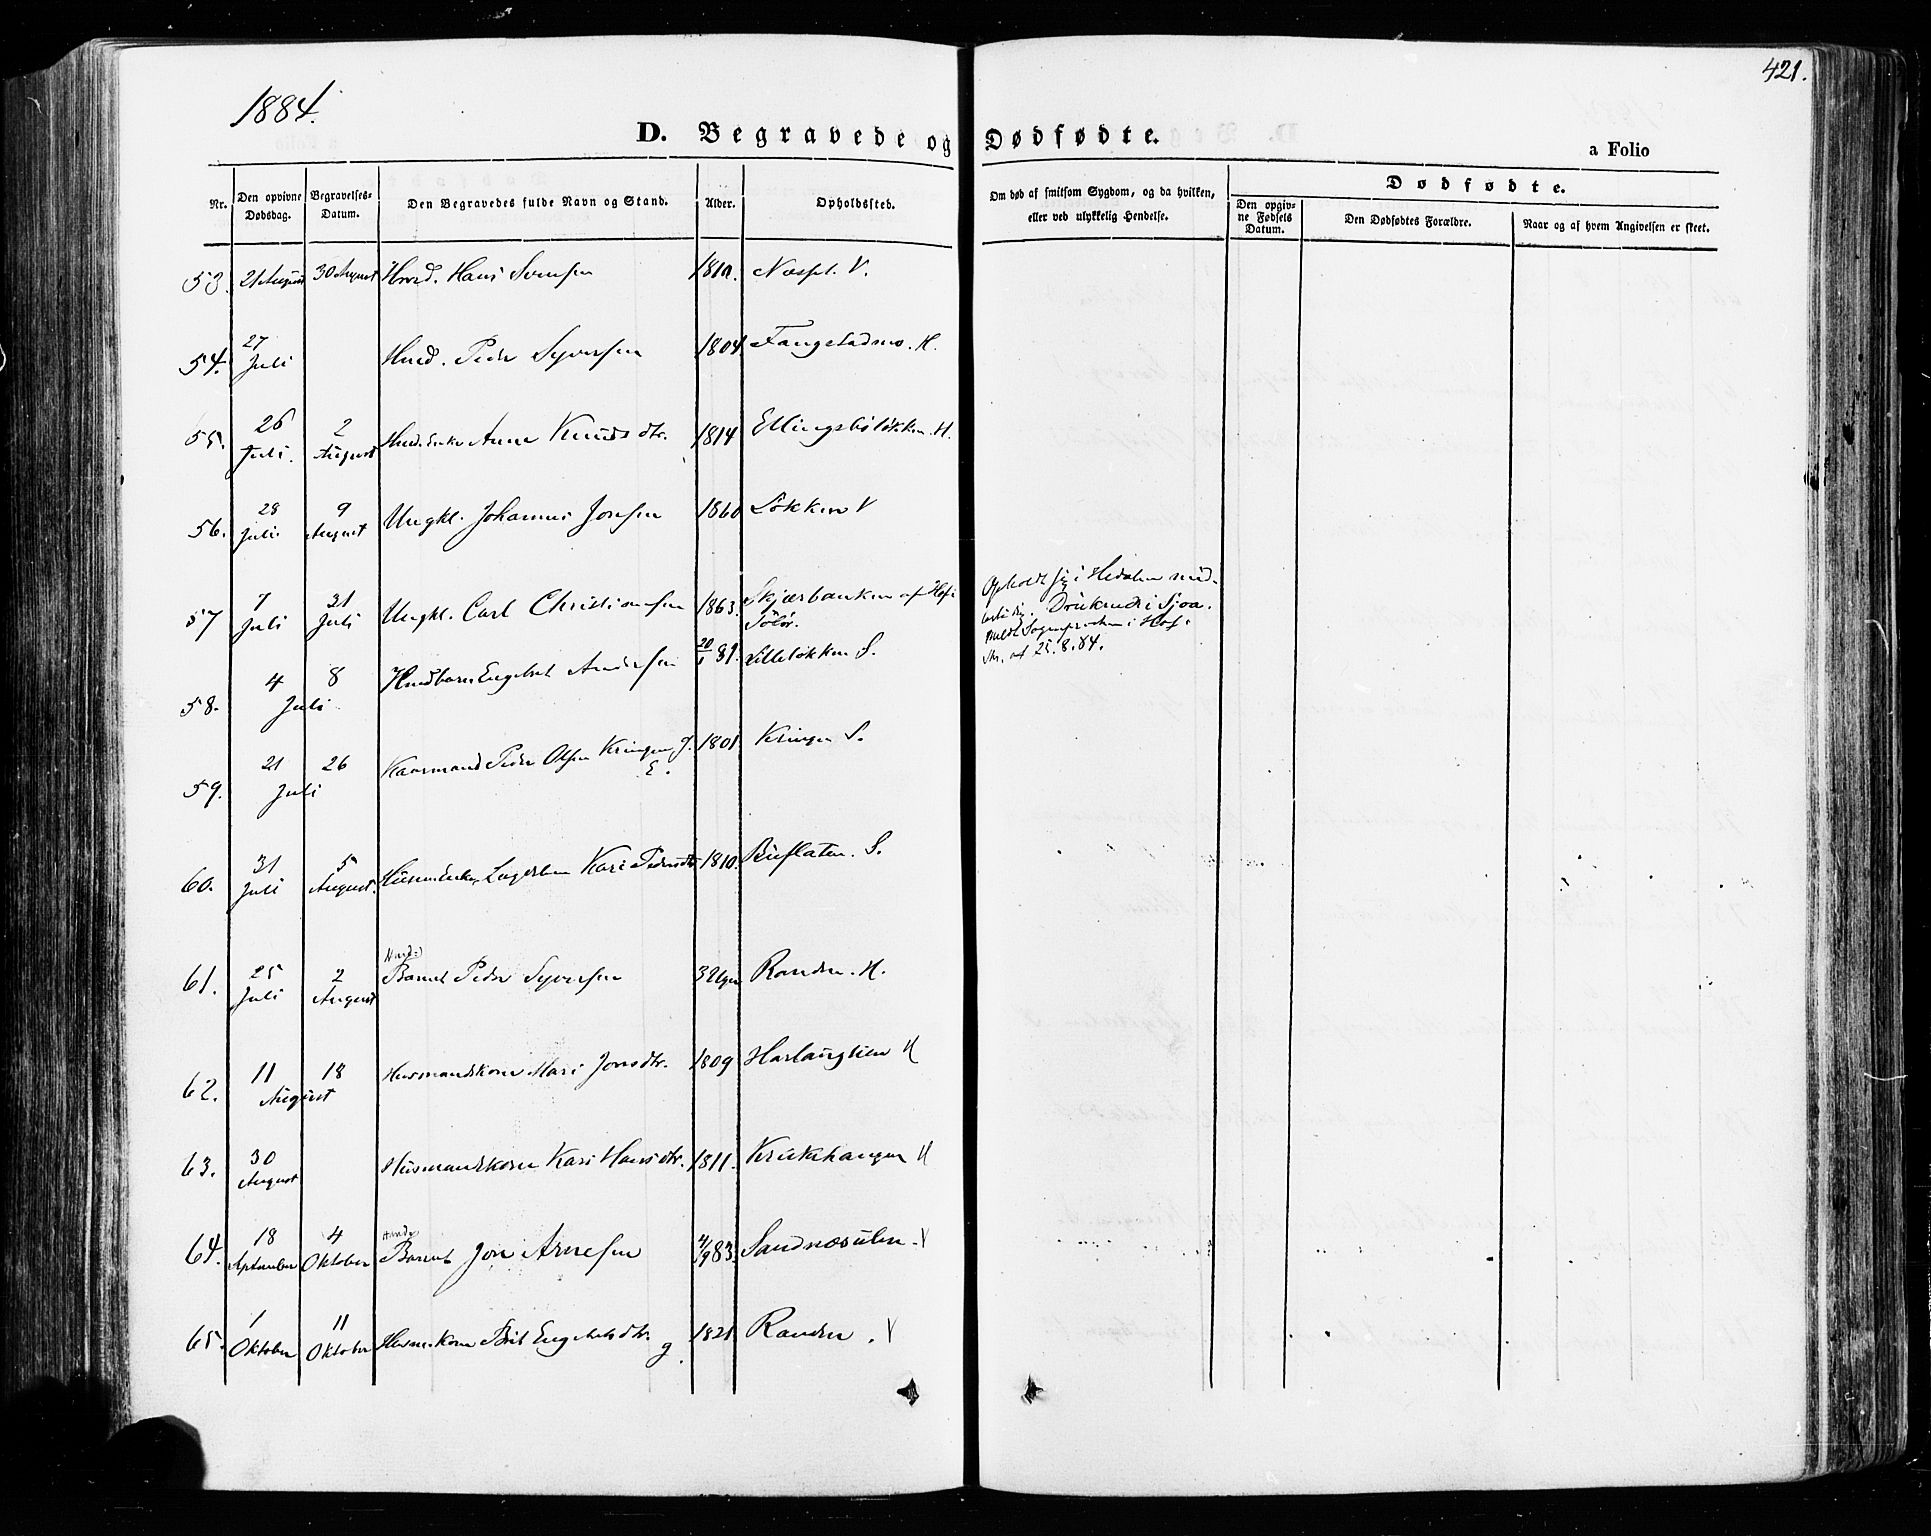 1884.
421.
D. Begravede og Dødfødte.
a Folio
Nr.
Den opgivne Dødsdag.
Begravelses-Datum.
Den Begravedes fulde Navn og Stand.
Alder.
Opholdssted.
Om død af smitsom Sygdom, og da hvilken,
eller ved ulykkelig Hendelse.
Dødfødte.
Den opgivne Fødsels Datum.
Den Dødfødtes Forældre.
Naar og af hvem Angivelsen er skeet.
53. 21 August 30 August Hans Svensen V.
54. 27 Juli Peder Syversen 1804 Fangestadmo. H.
55. 26 Juli. 2 August Anne Knudsdtr. 1814 H.
56. 28 Juli. 9 August Ungkl. Johannes Jonsen 1860 Løkken V
57 7 Juli 31 Juli Ungkl. Carl Christiansen 1863. Skjærbanken af Hof i
Solør.
Opholdt sig i Hedalen mid-
lertidig. Druknede i Sjoa.
i Hof
25.8.84.
58. 4 8 Juli Engebret Andersen 20/1 81. Lilleløkken S.
59. 21 26 Juli Kaarmand Peder Olsen Kringen J. 1801 Kringen S.
E.
60. 31 Juli 5 August. Kari Pedersdtr 1810. Ruflaten. S.
61. 25 Juli 2 August Barnet Peder Syversen 3 Uger Randen. H.
62. 11 18 August Husmandskone Mari Jonsdtr. 1809 Haslanglien H
63. 30 August Husmandskone Kari Hansdtr. 1811. Krukhaugen H
64. 18 September 4 Oktober Barnet Jon Arnesen 4/9 83. V
65. 1 Oktober 11 Oktober Brit Engebretsdtr. g 1821 Randen. V